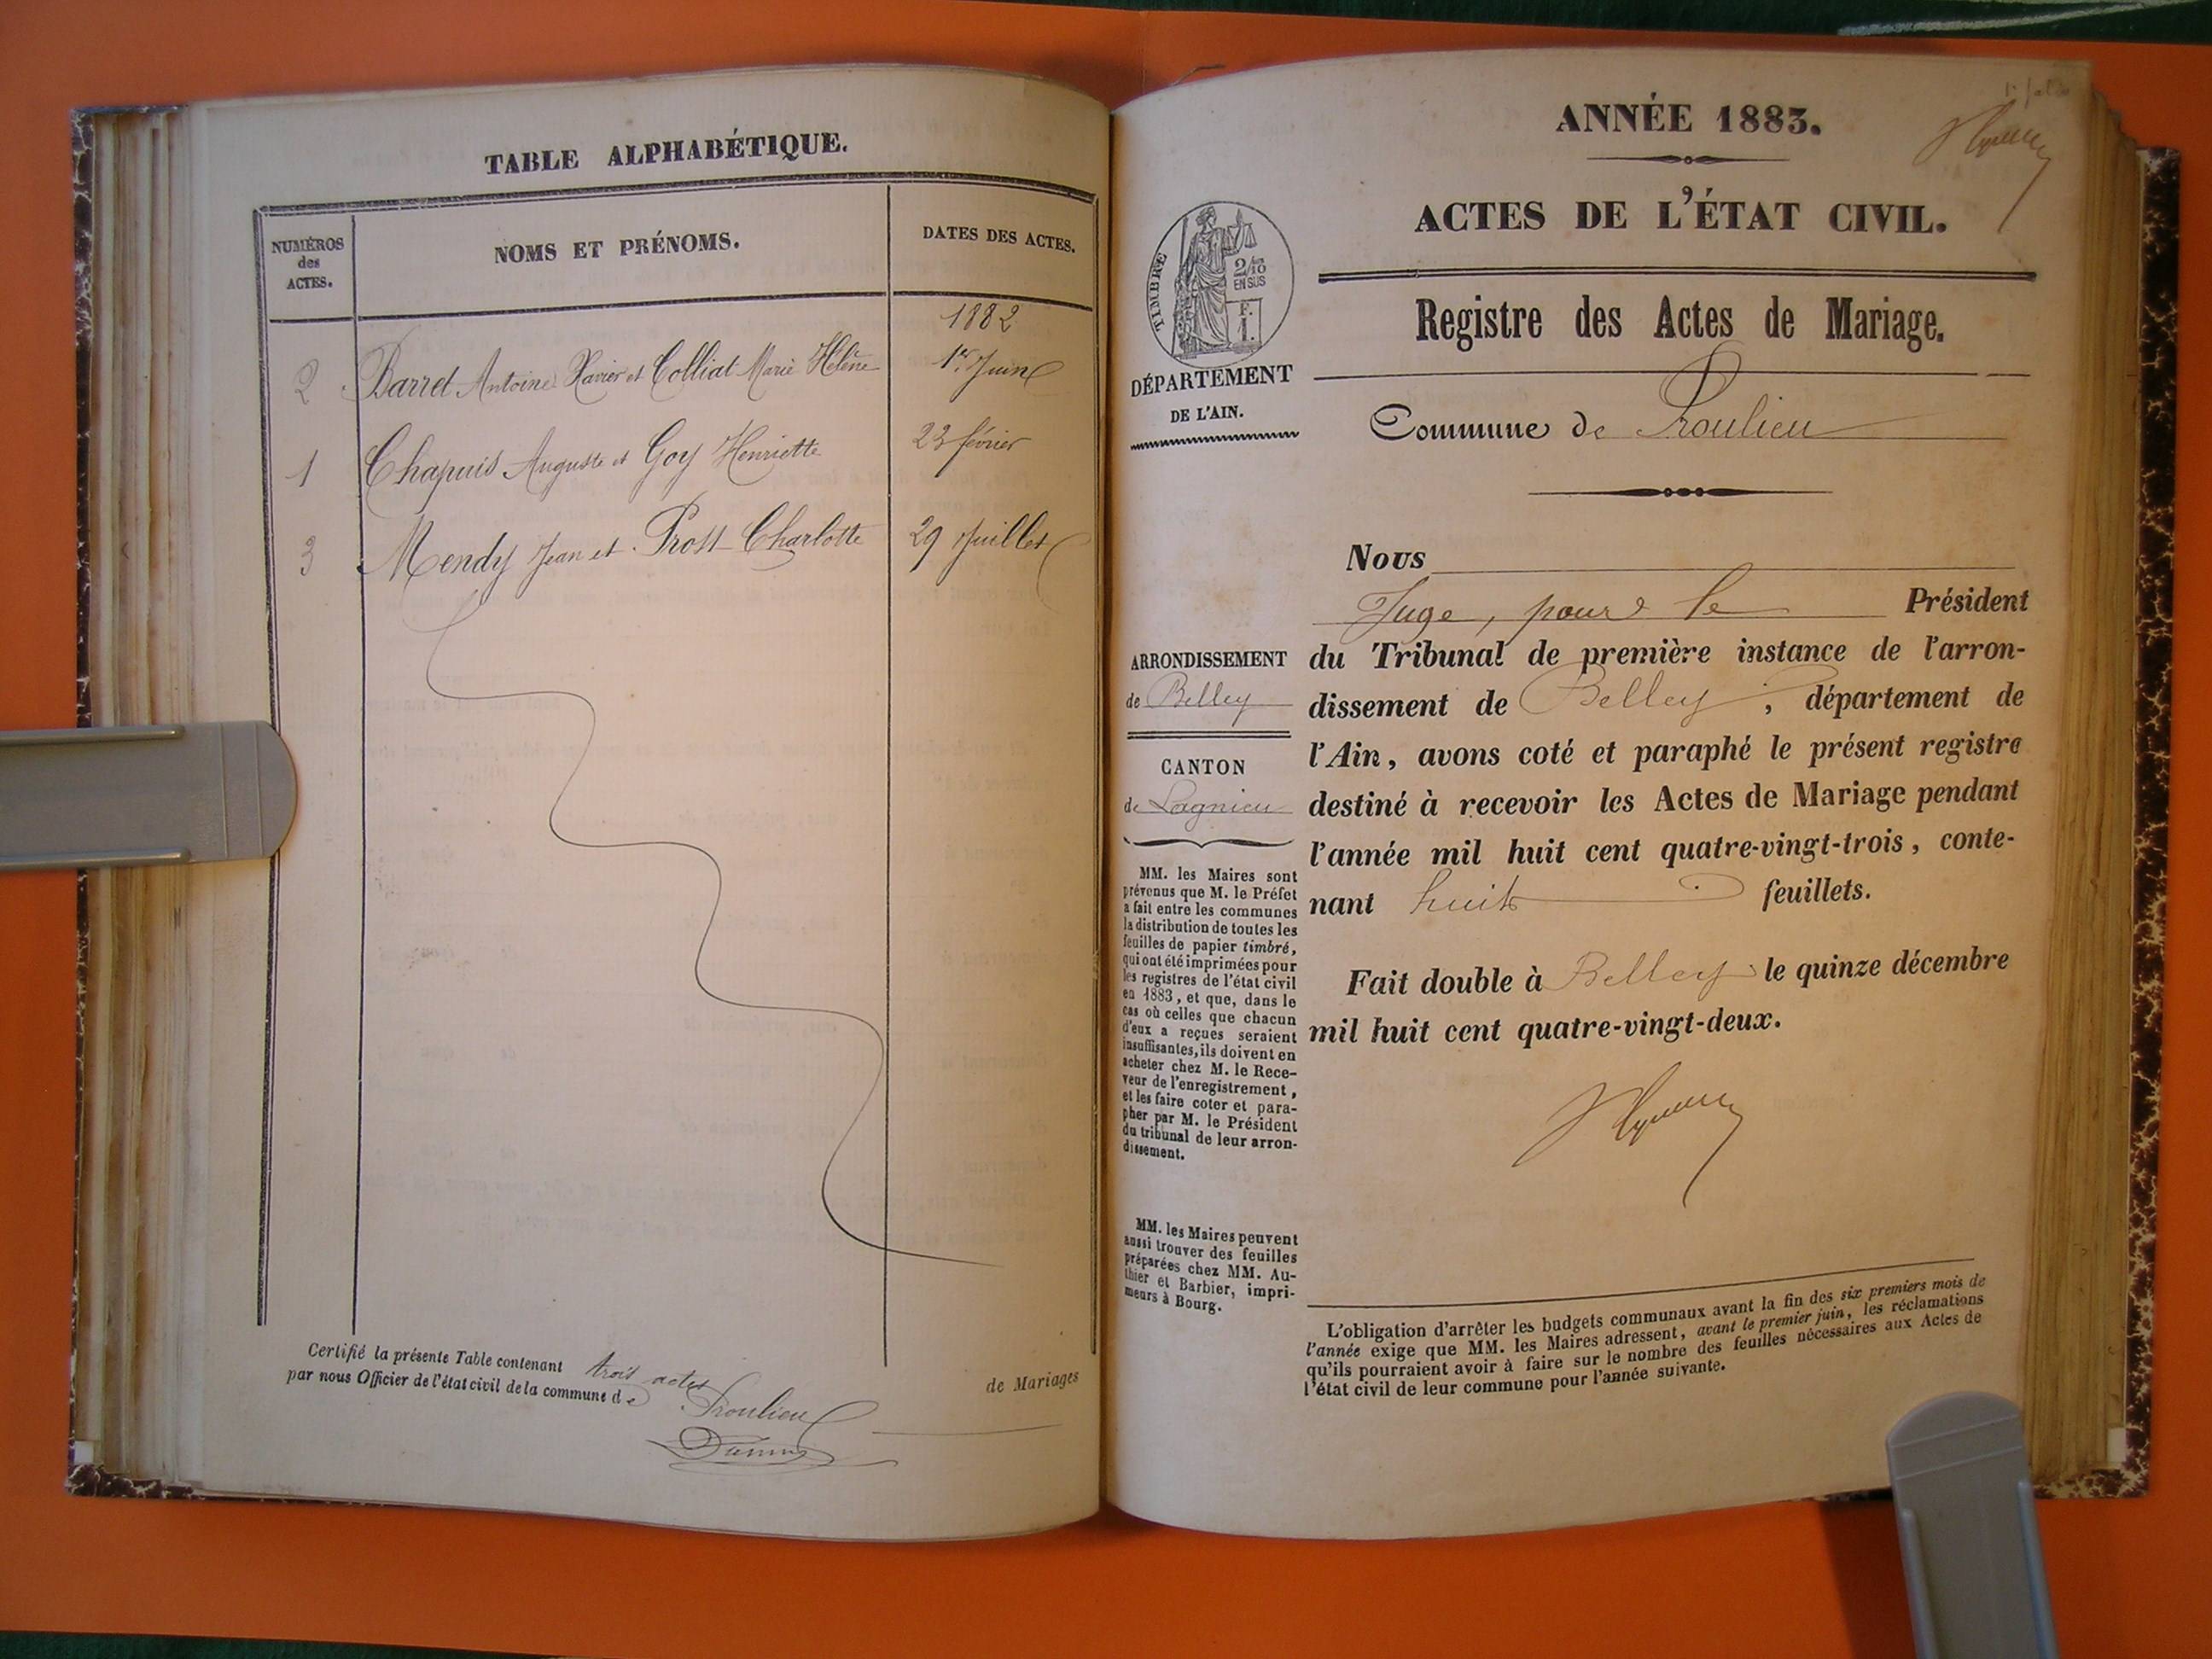 TABLE ALPHABÉTIQUE.
NUMÉROS
des
ACTES.
NOMS ET PRÉNOMS.
DATES DES ACTES.
1882
2 Barret Antoine Xavier et Colliat Marie Hélène 1er Juin
1 Chapuis Auguste et Goy Henriette 23 février
3 Mendy Jean et Prost Charlotte 29 Juillet
Certifié la présente Table contenant trois actes de Mariages
par nous Officier de l'état civil de la commune de Proulieu
ANNÉE 1883.
ACTES DE L'ÉTAT CIVIL.
TIMBRE
2/10
EN SUS
F.
1.
DÉPARTEMENT
DE L'AIN.
Registre des Actes de Mariage.
Commune de Proulieu
Nous
Juge, pour le Président
du Tribunal de première instance de l'arron-
dissement de Belley, département de
l'Ain, avons coté et paraphé le présent registre
destiné à recevoir les Actes de Mariage pendant
l'année mil huit cent quatre-vingt-trois, conte-
nant huit feuillets.
Fait double à Belley le quinze décembre
mil huit cent quatre-vingt-deux.
ARRONDISSEMENT
de Belley
CANTON
de Lagnieu
MM. les Maires sont
prévenus que M. le Préfet
a fait entre les communes
la distribution de toutes les
feuilles de papier timbré,
qui ont été imprimées pour
les registres de l'état civil
en 1883, et que, dans le
cas où celles que chacun
d'eux a reçues seraient
insuffisantes, ils doivent en
acheter chez M. le Rece-
veur de l'enregistrement,
et les faire coter et para-
pher par M. le Président
du tribunal de leur arron-
dissement.
MM. les Maires peuvent
aussi trouver des feuilles
préparées chez MM. Au-
thier et Barbier, impri-
meurs à Bourg.
L'obligation d'arrêter les budgets communaux avant la fin des six premiers mois de
l'année exige que MM. les Maires adressent, avant le premier juin, les réclamations
qu'ils pourraient avoir à faire sur le nombre des feuilles nécessaires aux Actes de
l'état civil de leur commune pour l'année suivante.